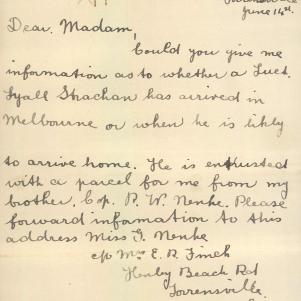 June 14th.
Dear Madam,
Could you give me
information as to whether a Lieut.
Lyall Strachan has arrived in
Melbourne or when he is likly
to arrive home. He is entrusted
with a parcel for me from my
brother. Cop. P. W. Nenke. Please
forward information to this
address Miss G. Nenke
c/o Mrs E. R. Finch
Henley Beach Rd
Torrensville.